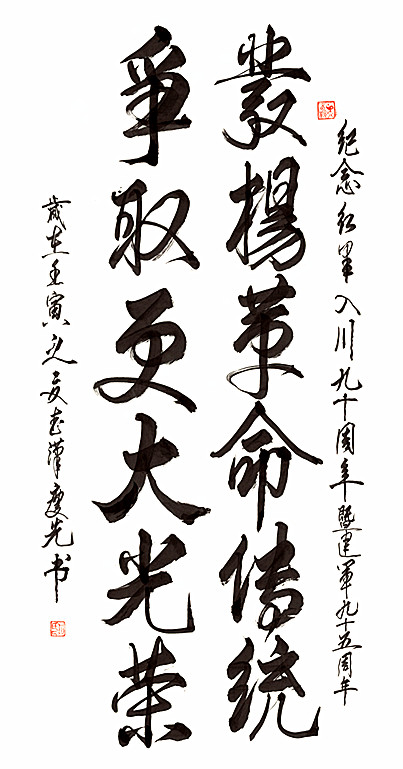 纪念红军入川九十周年暨建军九十五周年
發揚革命传统
爭取更大光荣
歲在壬寅之夏漢慶先书